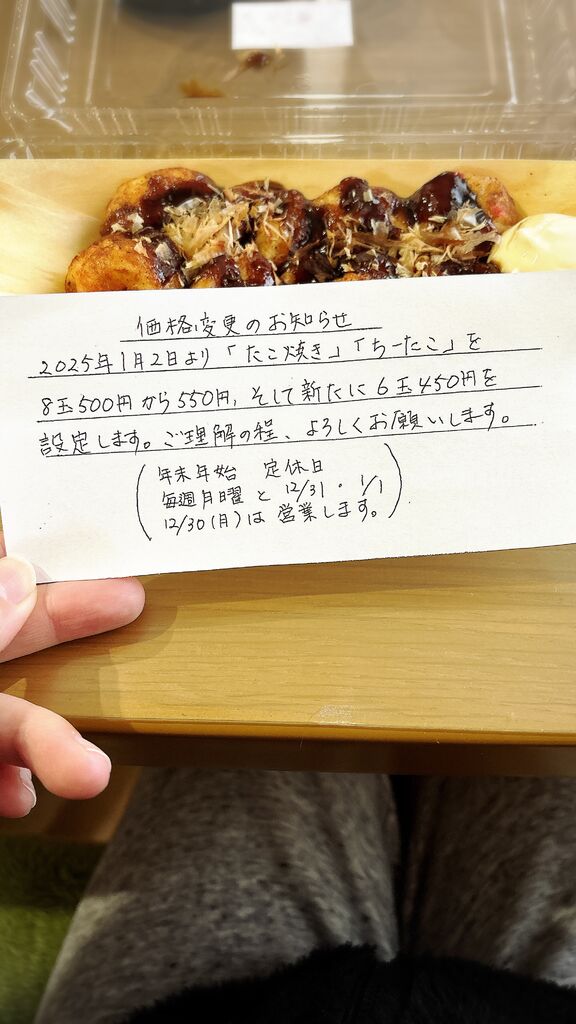 価格変更のお知らせ
2025年1月2日より「たこ焼き」「ちーたこ」を
8玉500円から550円、そして新たに6玉450円を
設定します。ご理解の程、よろしくお願いします。
(年末年始 定休日
毎週月曜と12/31・1/1
12/30(月)は営業します。)